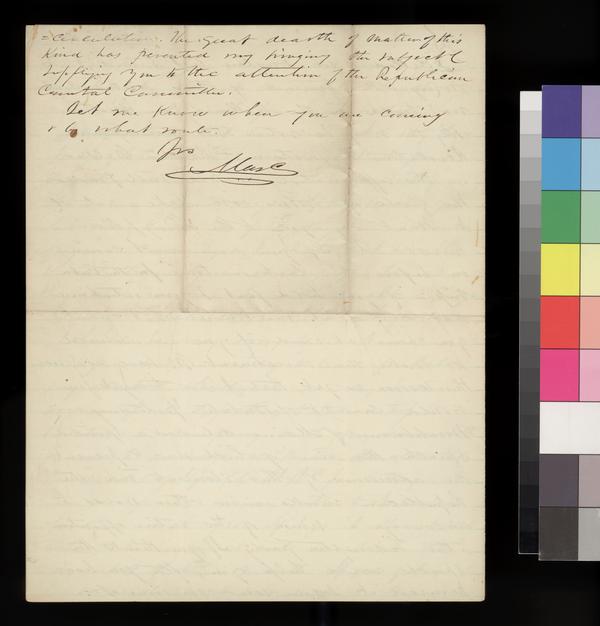 =Circulation. The great dearth of matter of this
kind has prevented my bringing the subject of
supplying you to the attention of the Republican
Central Committee.
Let me know when you are coming
& by what route.
Yrs